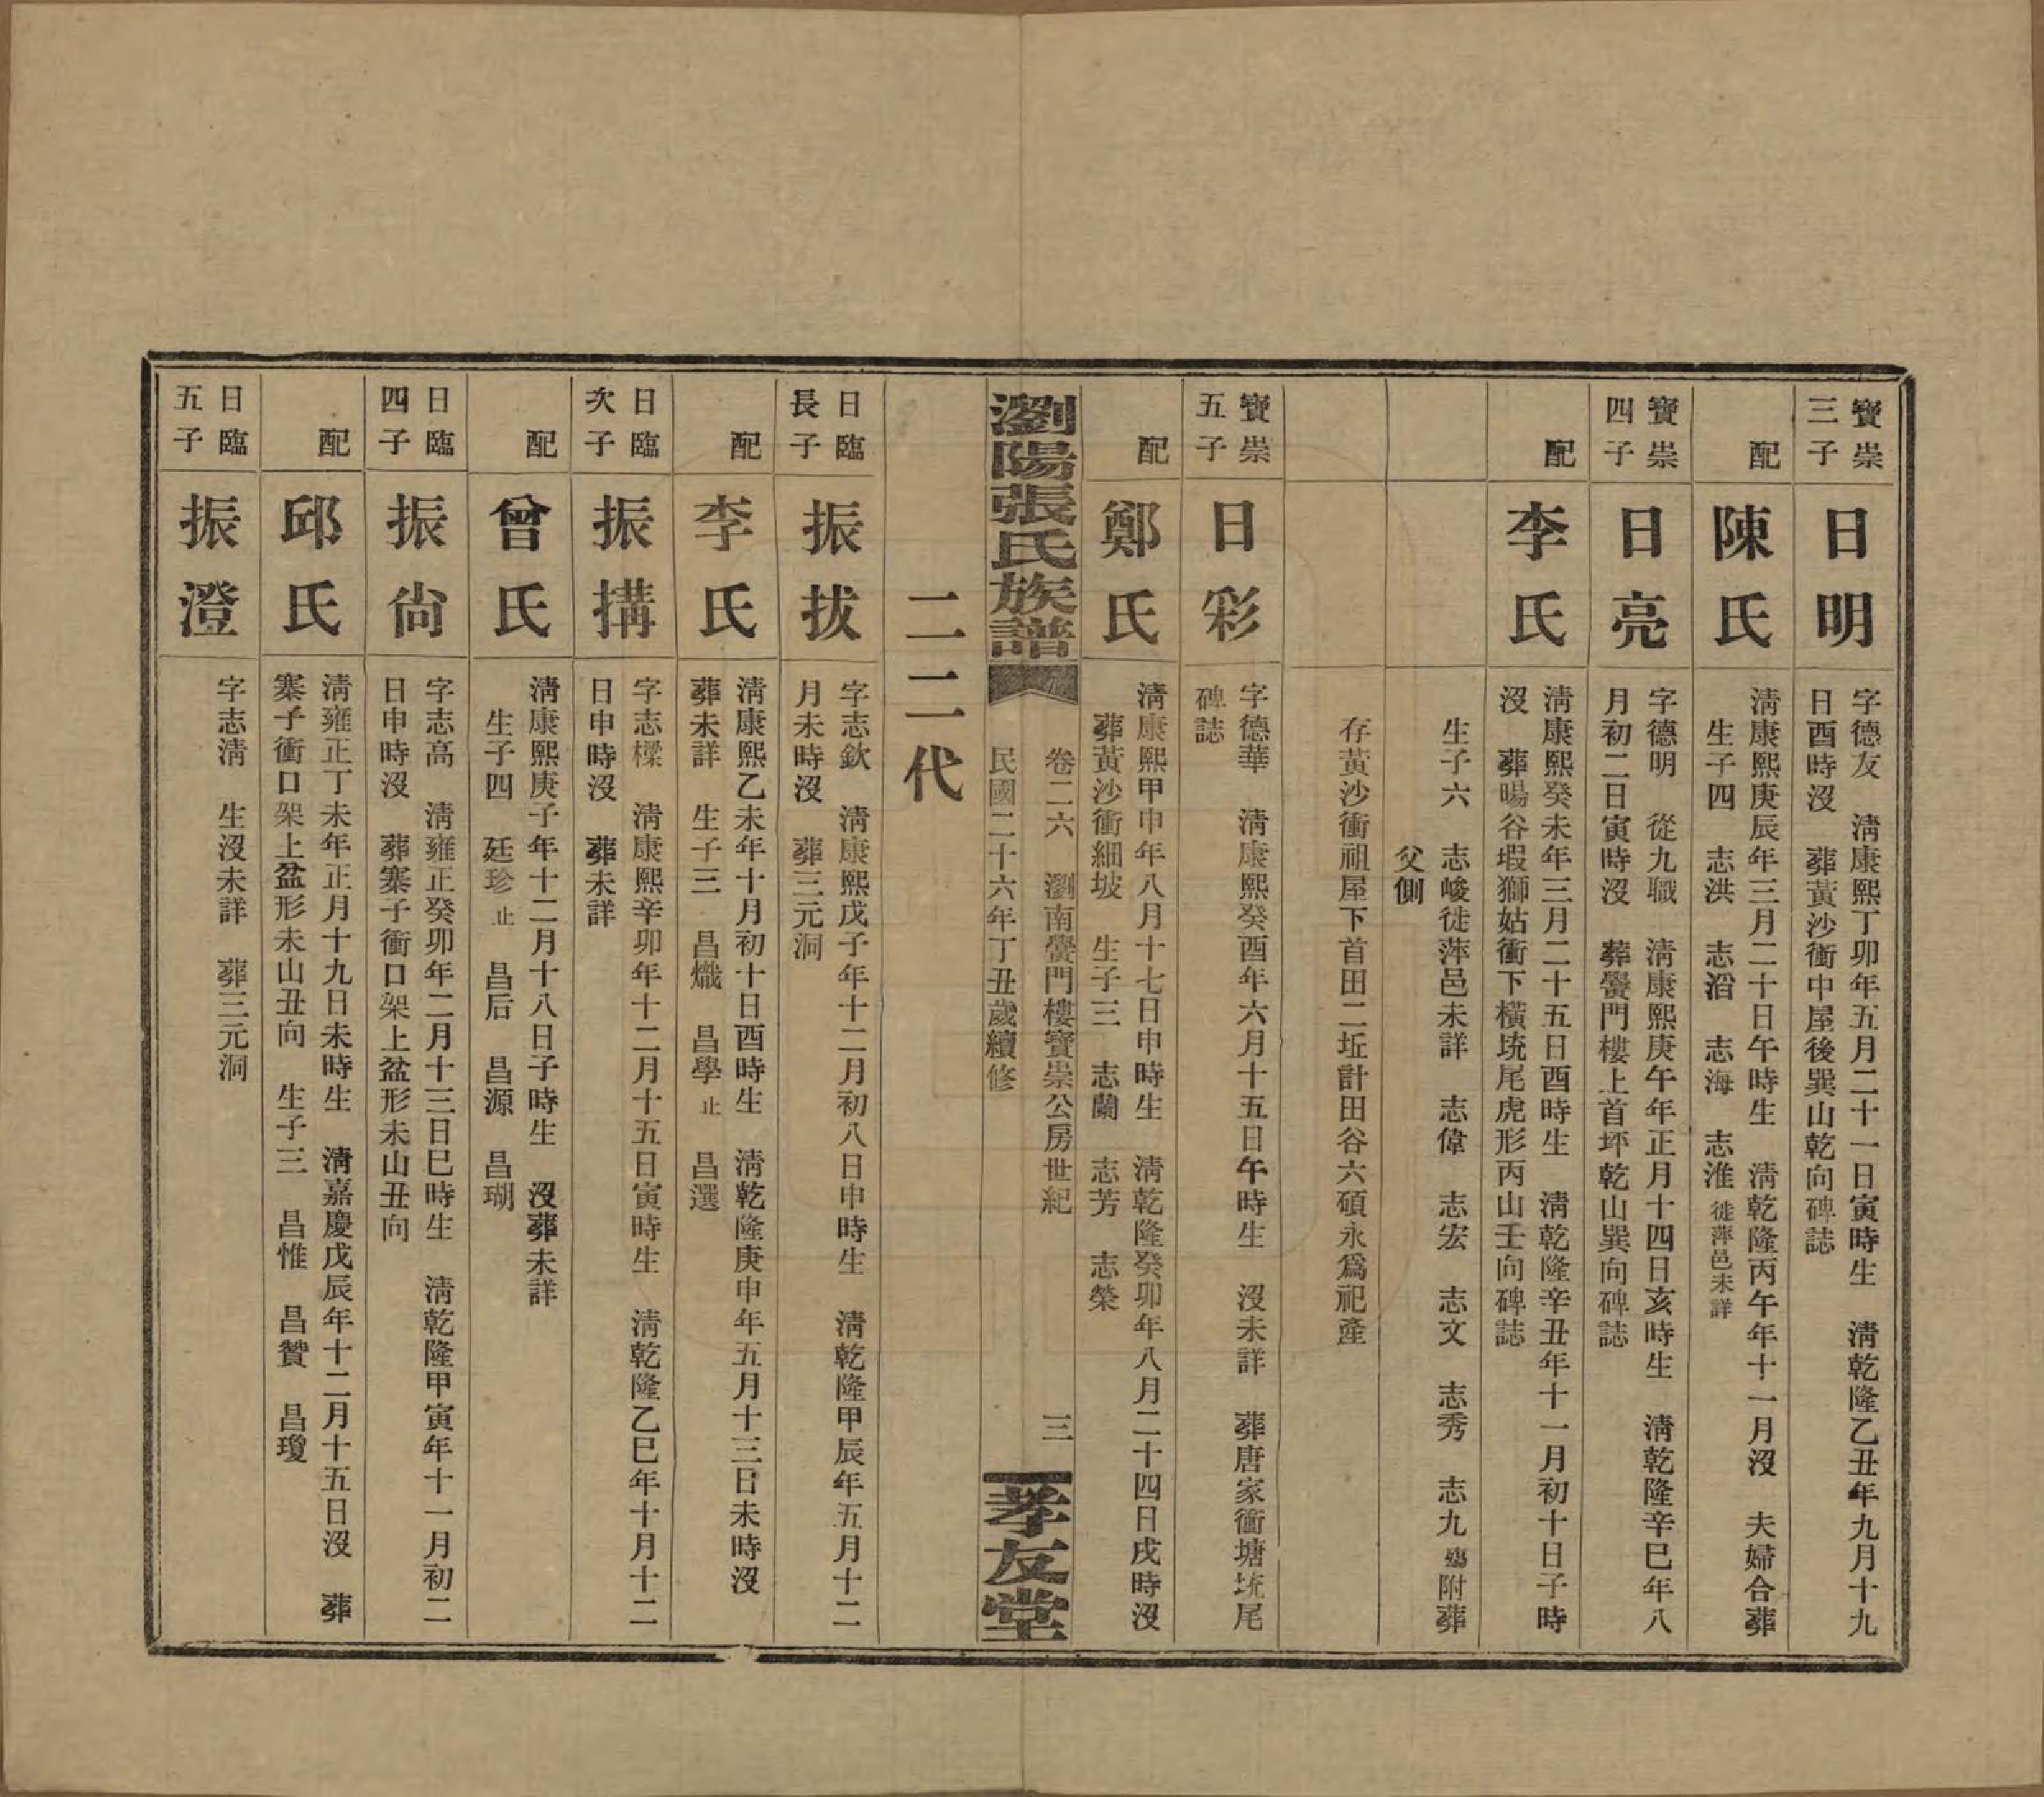 寶崇三子
日明
字德友　清康熙丁卯年五月二十一日寅時生　清乾隆乙丑年九月十九
日酉時沒　葬黃沙衝中屋後巽山乾向碑誌
配
陳氏
清康熙庚辰年三月二十日午時生　清乾隆丙午年十一月沒　夫婦合葬
生子四　志洪　志滔　志海　志淮徙萍邑未詳
寶崇四子
日亮
字德明　從九職　清康熙庚午年正月十四日亥時生　清乾隆辛巳年八
月初二日寅時沒　葬黌門樓上首坪乾山巽向碑誌
配
李氏
清康熙癸未年三月二十五日酉時生　清乾隆辛丑年十一月初十日子時
沒　葬暘谷塅獅姑衝下橫塃尾虎形丙山壬向碑誌
生子六　志峻徙萍邑未詳　志偉　志宏　志文　志秀　志九殤附葬
父側
存黃沙衝祖屋下首田二坵計田谷六碩永爲祀產
寶崇五子
日彩
字德華　清康熙癸酉年六月十五日午時生　沒未詳　葬唐家衝塘塃尾
碑誌
配
鄭氏
清康熙甲申年八月十七日申時生　清乾隆癸卯年八月二十四日戌時沒
葬黃沙衝細坡　生子三　志蘭　志芳　志榮
瀏陽張氏族譜
卷二六　瀏南黌門樓寶崇公房世紀　三
民國二十六年丁丑歲續修
孝友堂
二二代
日臨長子
振拔
字志欽　清康熙戊子年十二月初八日申時生　清乾隆甲辰年五月十二
月未時沒　葬三元洞
配
李氏
清康熙乙未年十月初十日酉時生　清乾隆庚申年五月十三日未時沒
葬未詳　生子三　昌熾　昌學止　昌選
日臨次子
振搆
字志樑　清康熙辛卯年十二月十五日寅時生　清乾隆乙巳年十月十二
日申時沒　葬未詳
配
曾氏
清康熙庚子年十二月十八日子時生　沒葬未詳
生子四　廷珍止　昌后　昌源　昌瑚
日臨四子
振尙
字志高　清雍正癸卯年二月十三日巳時生　清乾隆甲寅年十一月初二
日申時沒　葬寨子衝口架上盆形未山丑向
配
邱氏
清雍正丁未年正月十九日未時生　清嘉慶戊辰年十二月十五日沒　葬
寨子衝口架上盆形未山丑向　生子三　昌惟　昌贊　昌瓊
日臨五子
振澄
字志清　生沒未詳　葬三元洞